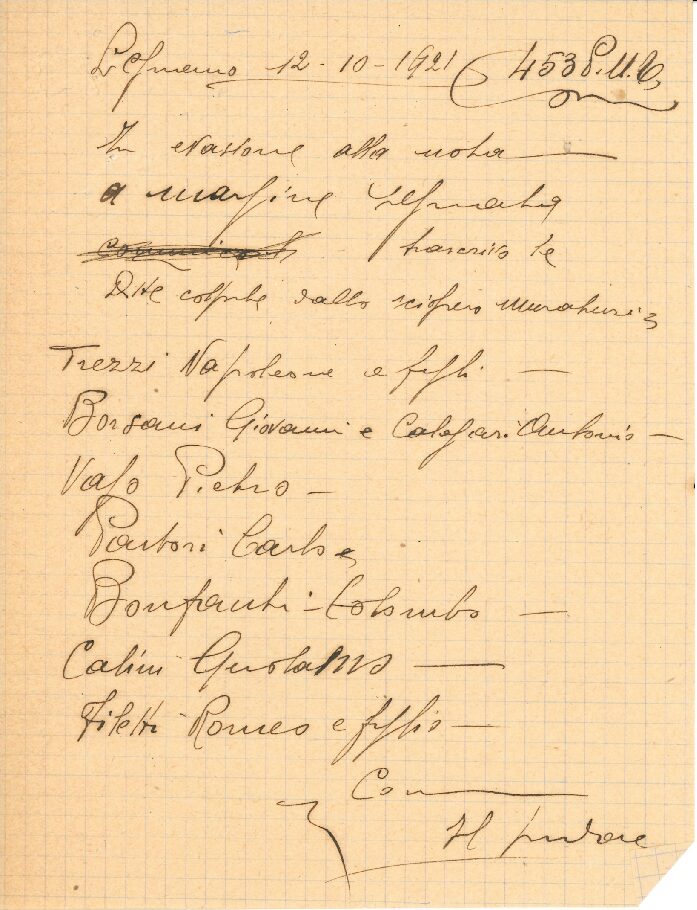 Legnano 12-10-1921 4538 P.U.
In evasione alla nota
a margine segnata
trascrivo le
Ditte colpite dallo sciopero muratori
Trezzi Napoleone e figli —
Borsani Giovanni e Calegari Antonio —
Pietro —
Pastori Carlo
Bonfanti - Colombo —
Calini Gerolamo —
Filetti Romeo e figlio —
Con
Il